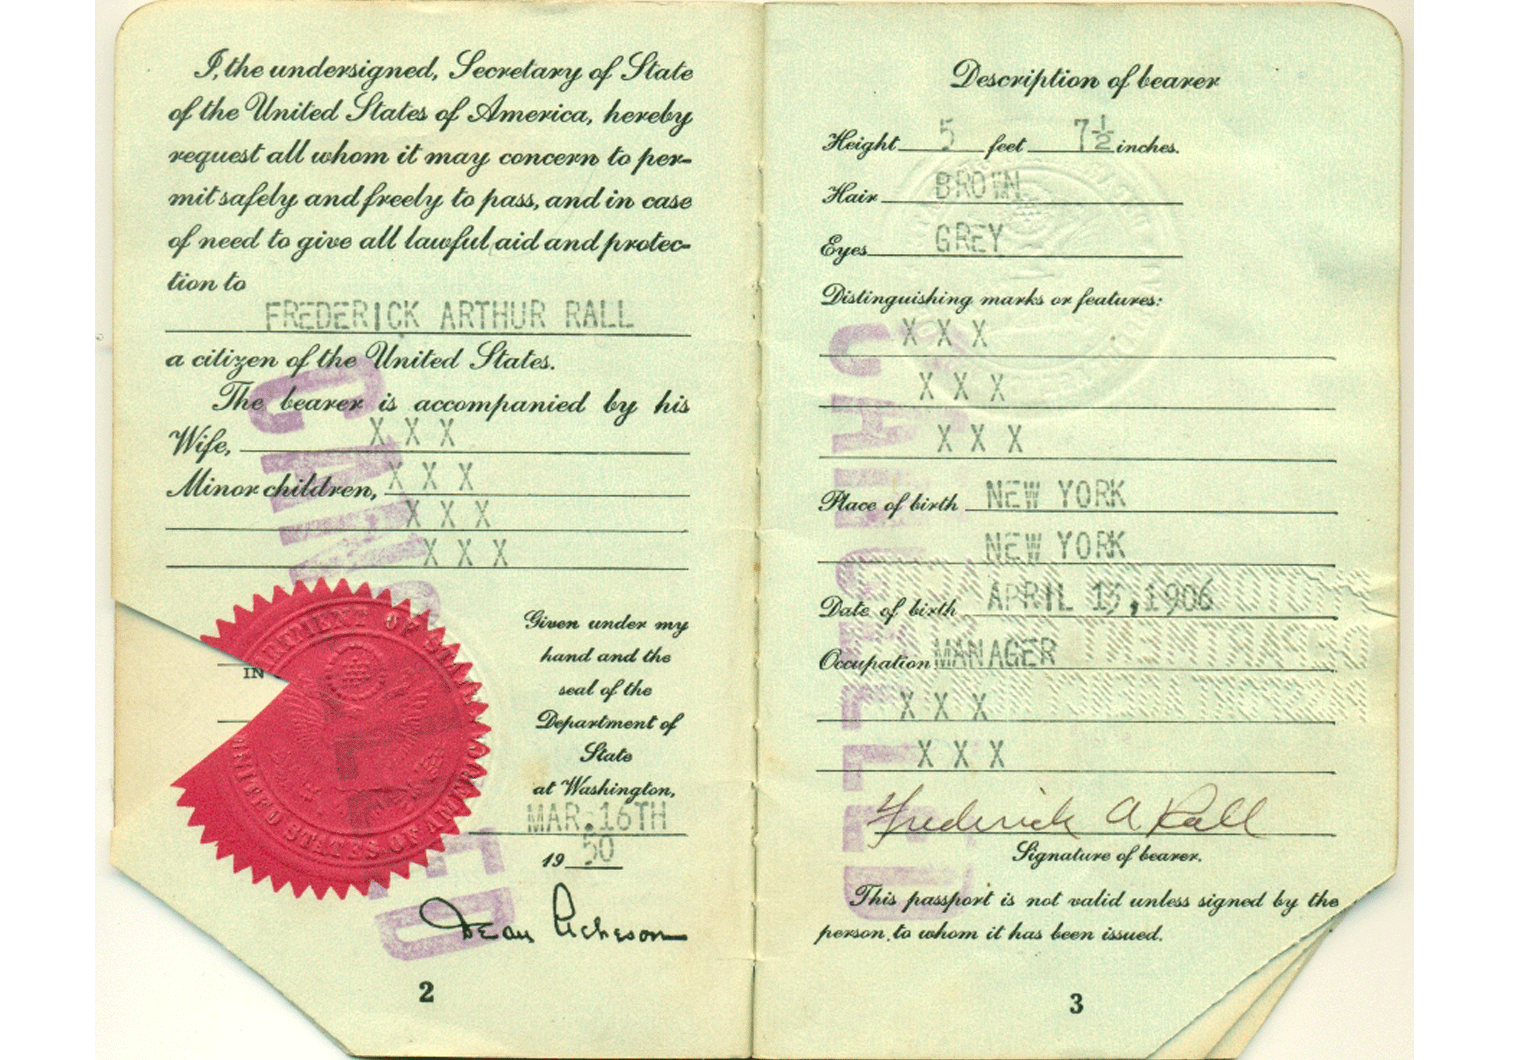 I, the undersigned, Secretary of State
of the United States of America, hereby
request all whom it may concern to per-
mit safely and freely to pass, and in case
of need to give all lawful aid and protec-
tion to
FREDERICK ARTHUR RALL
a citizen of the United States.
The bearer is accompanied by his
Wife, X X X
Minor children, X X X
X X X
X X X
IN
Given under my
hand and the
seal of the
Department of
State
at Washington,
MAR. 16TH
19 50
Dean Acheson
2
CANCELLED
DEPARTMENT OF STATE
UNITED STATES OF AMERICA
Description of bearer
Height 5 feet 7½ inches.
Hair BROWN
Eyes GREY
Distinguishing marks or features:
X X X
X X X
X X X
Place of birth NEW YORK
NEW YORK
Date of birth APRIL 13, 1906
Occupation MANAGER
X X X
X X X
Frederick A Rall
Signature of bearer.
This passport is not valid unless signed by the
person to whom it has been issued.
3
CANCELLED